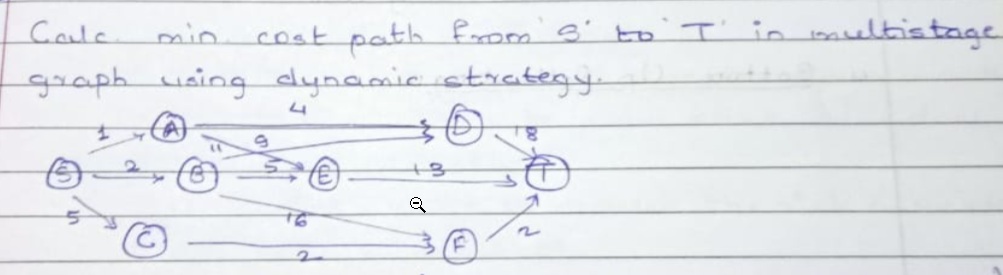 Calc. min. cost path from 'S' to 'T' in multistage
graph using dynamic strategy.
4
1 A D 18
11 9
S 2 B 5 E 13 T
5 16
C 2 F 2